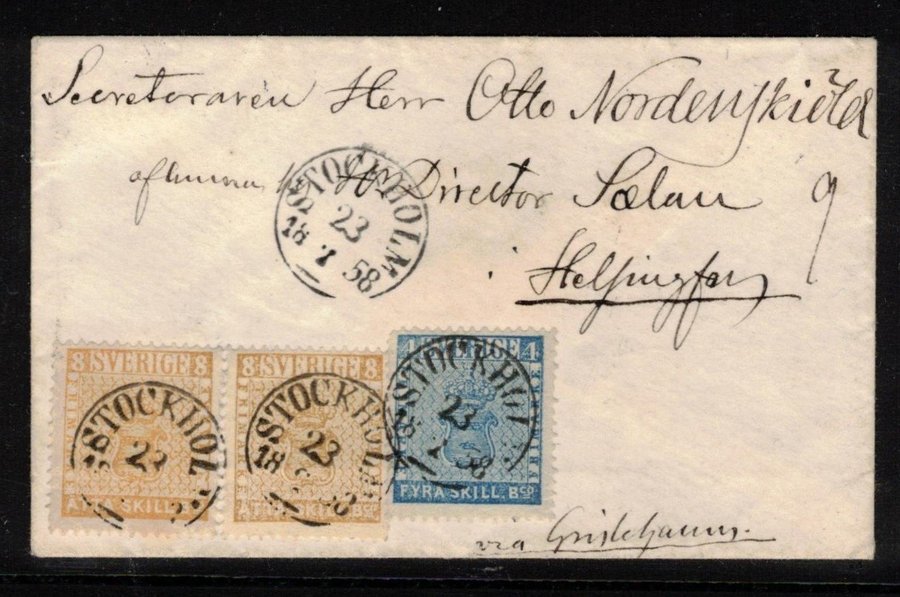 Secreteraren Herr Otto Nordenskiöld
Hr Director Sælan
Helsingfors
STOCKHOLM
23
18 7 58
8 SVERIGE 8
STOCKHOL
23
ÅTTA SKILL.
8 SVERIGE 8
STOCKHOLM
23
18
ÅTTA SKILL. Bco
4 SVERIGE 4
STOCKHOL
23
58
FYRA SKILL. Bco
via Grislehamn